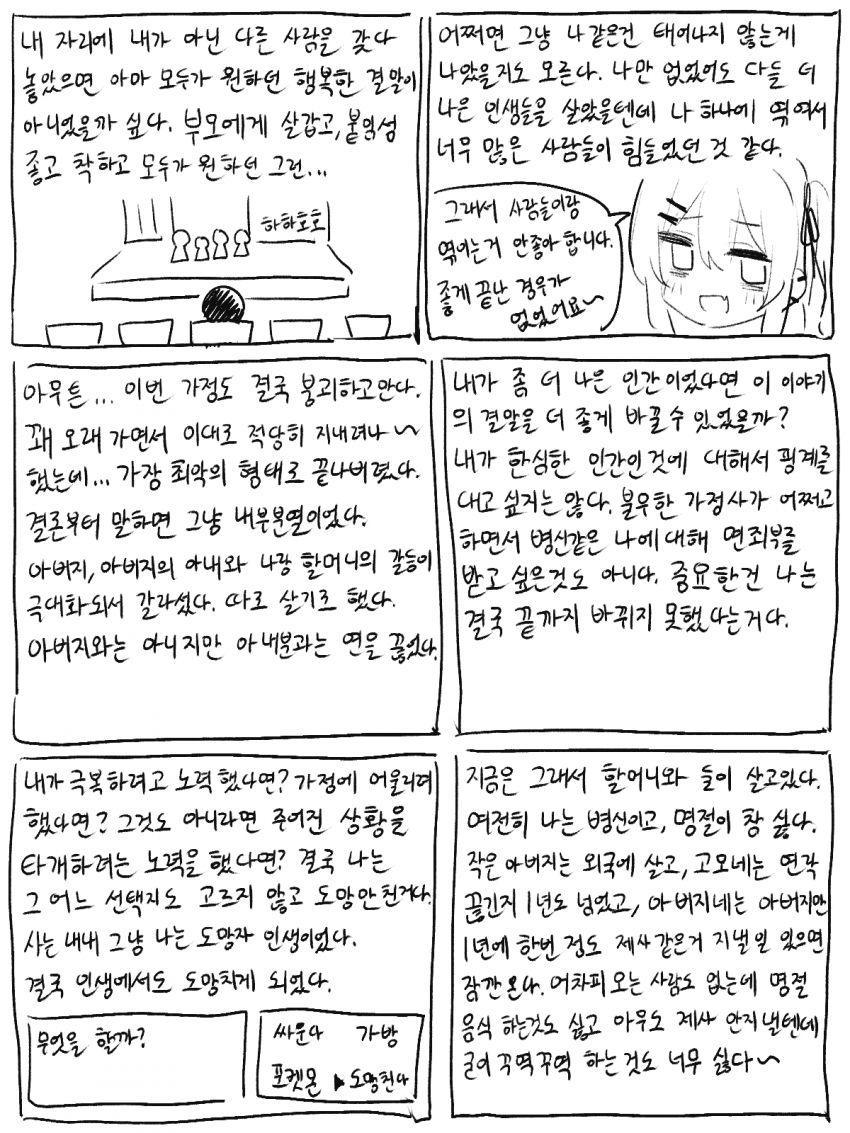 내 자리에 내가 아닌 다른 사람을 갖다
놓았으면 아마 모두가 원하던 행복한 결말이
아니었을까 싶다. 부모에게 살갑고, 붙임성
좋고 착하고 모두가 원하던 그런...
하하호호
어쩌면 그냥 나같은건 태어나지 않는게
나았을지도 모른다. 나만 없었어도 다들 더
나은 인생들을 살았을텐데 나 하나에 엮여서
너무 많은 사람들이 힘들었던 것 같다.
그래서 사람들이랑
엮이는거 안좋아 합니다.
좋게 끝난 경우가
없었어요~
아무튼... 이번 가정도 결국 붕괴하고만다.
꽤 오래 가면서 이대로 적당히 지내려나~
했는데... 가장 최악의 형태로 끝나버렸다.
결론부터 말하면 그냥 내부분열이었다.
아버지, 아버지의 아내와 나랑 할머니의 갈등이
극대화되서 갈라섰다. 따로 살기로 했다.
아버지와는 아니지만 아내분과는 연을 끊었다.
내가 좀 더 나은 인간이었다면 이 이야기
의 결말을 더 좋게 바꿀수 있었을까?
내가 한심한 인간인것에 대해서 핑계를
대고 싶지는 않다. 불우한 가정사가 어쩌고
하면서 병신같은 나에대해 면죄부를
받고 싶은것도 아니다. 중요한건 나는
결국 끝까지 바뀌지 못했다는거다.
내가 극복하려고 노력했다면? 가정에 어울리려
했다면? 그것도 아니라면 주어진 상황을
타개하려는 노력을 했다면? 결국 나는
그 어느 선택지도 고르지 않고 도망만친거다.
사는 내내 그냥 나는 도망자 인생이었다.
결국 인생에서도 도망치게 되었다.
무엇을 할까?
싸운다 가방
포켓몬 ▶도망친다
지금은 그래서 할머니와 둘이 살고있다.
여전히 나는 병신이고, 명절이 참 싫다.
작은 아버지는 외국에 살고, 고모네는 연락
끊긴지 1년도 넘었고, 아버지네는 아버지만
1년에 한번 정도 제사 같은거 지낼 일 있으면
잠깐 온다. 어차피 오는 사람도 없는데 명절
음식 하는것도 싫고 아무도 제사 안지낼텐데
굳이 꾸역꾸역 하는것도 너무 싫다~